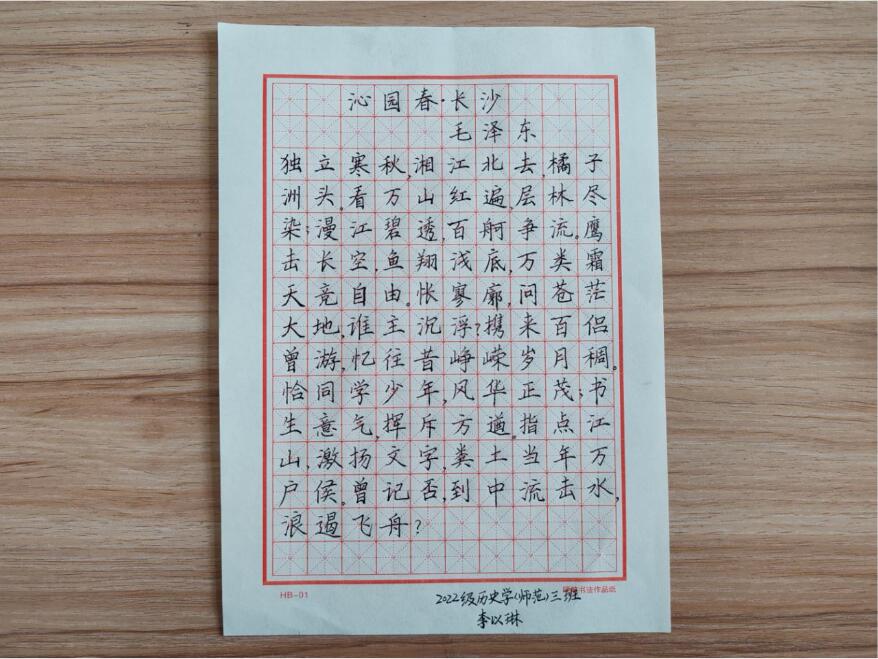 沁园春·长沙
毛泽东
独立寒秋,湘江北去,橘子
洲头。看万山红遍,层林尽
染;漫江碧透,百舸争流。鹰
击长空,鱼翔浅底,万类霜
天竞自由。怅寥廓,问苍茫
大地,谁主沉浮?携来百侣
曾游,忆往昔峥嵘岁月稠。
恰同学少年,风华正茂;书
生意气,挥斥方遒。指点江
山,激扬文字,粪土当年万
户侯。曾记否,到中流击水,
浪遏飞舟?
HB-01
书法作品纸
2022级历史学(师范)三班
李以琳